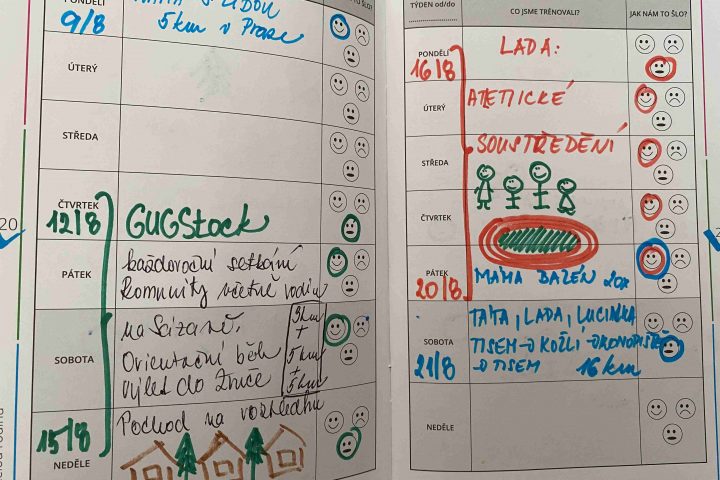 PONDĚLÍ
9/8
5 km v Praze
ÚTERÝ
STŘEDA
ČTVRTEK
12/8
GUGStock
PÁTEK
každoroční setkání
komunity včetně rodin
SOBOTA
na Sázavě.
Orientační běh
výlet do Zruče
5 km
+
5 km
Pochod na rozhlednu
15/8
NEDĚLE
20
TÝDEN od/do
CO JSME TRÉNOVALI?
JAK NÁM TO ŠLO?
PONDĚLÍ
16/8
LADA:
ÚTERÝ
ATETICKÉ
STŘEDA
SOUSTŘEDĚNÍ
ČTVRTEK
PÁTEK
20/8
MÁMA BAZÉN 20x
SOBOTA
21/8
TÁTA, LADA, LUCINKA
TISEM-O KOŽLÍ-
-O TISEM 16 km
NEDĚLE